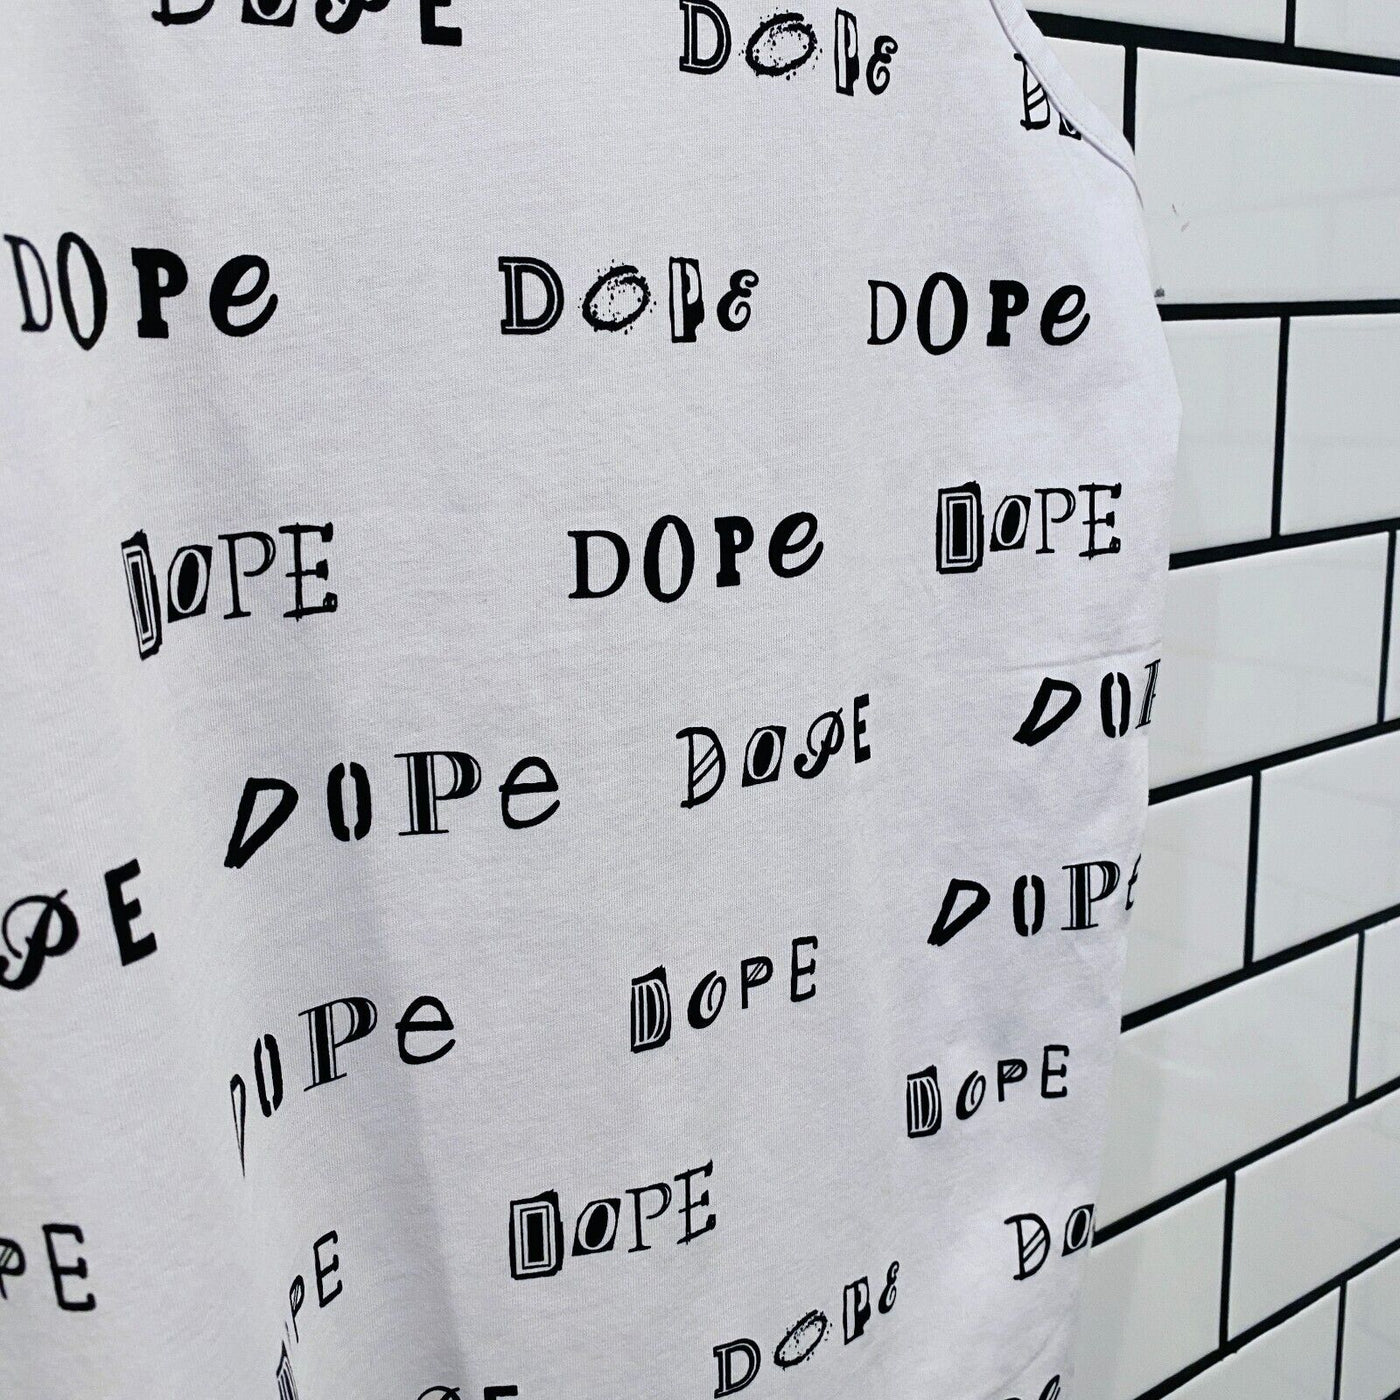 DOPE DOPE DO
DOPe DOPE DOPe
DOPE DOPe DOPE
DOPe DOPE DOP
PE DOPe
DOPe DOPE
DOPE
PE DOPE DO
PE DOPE